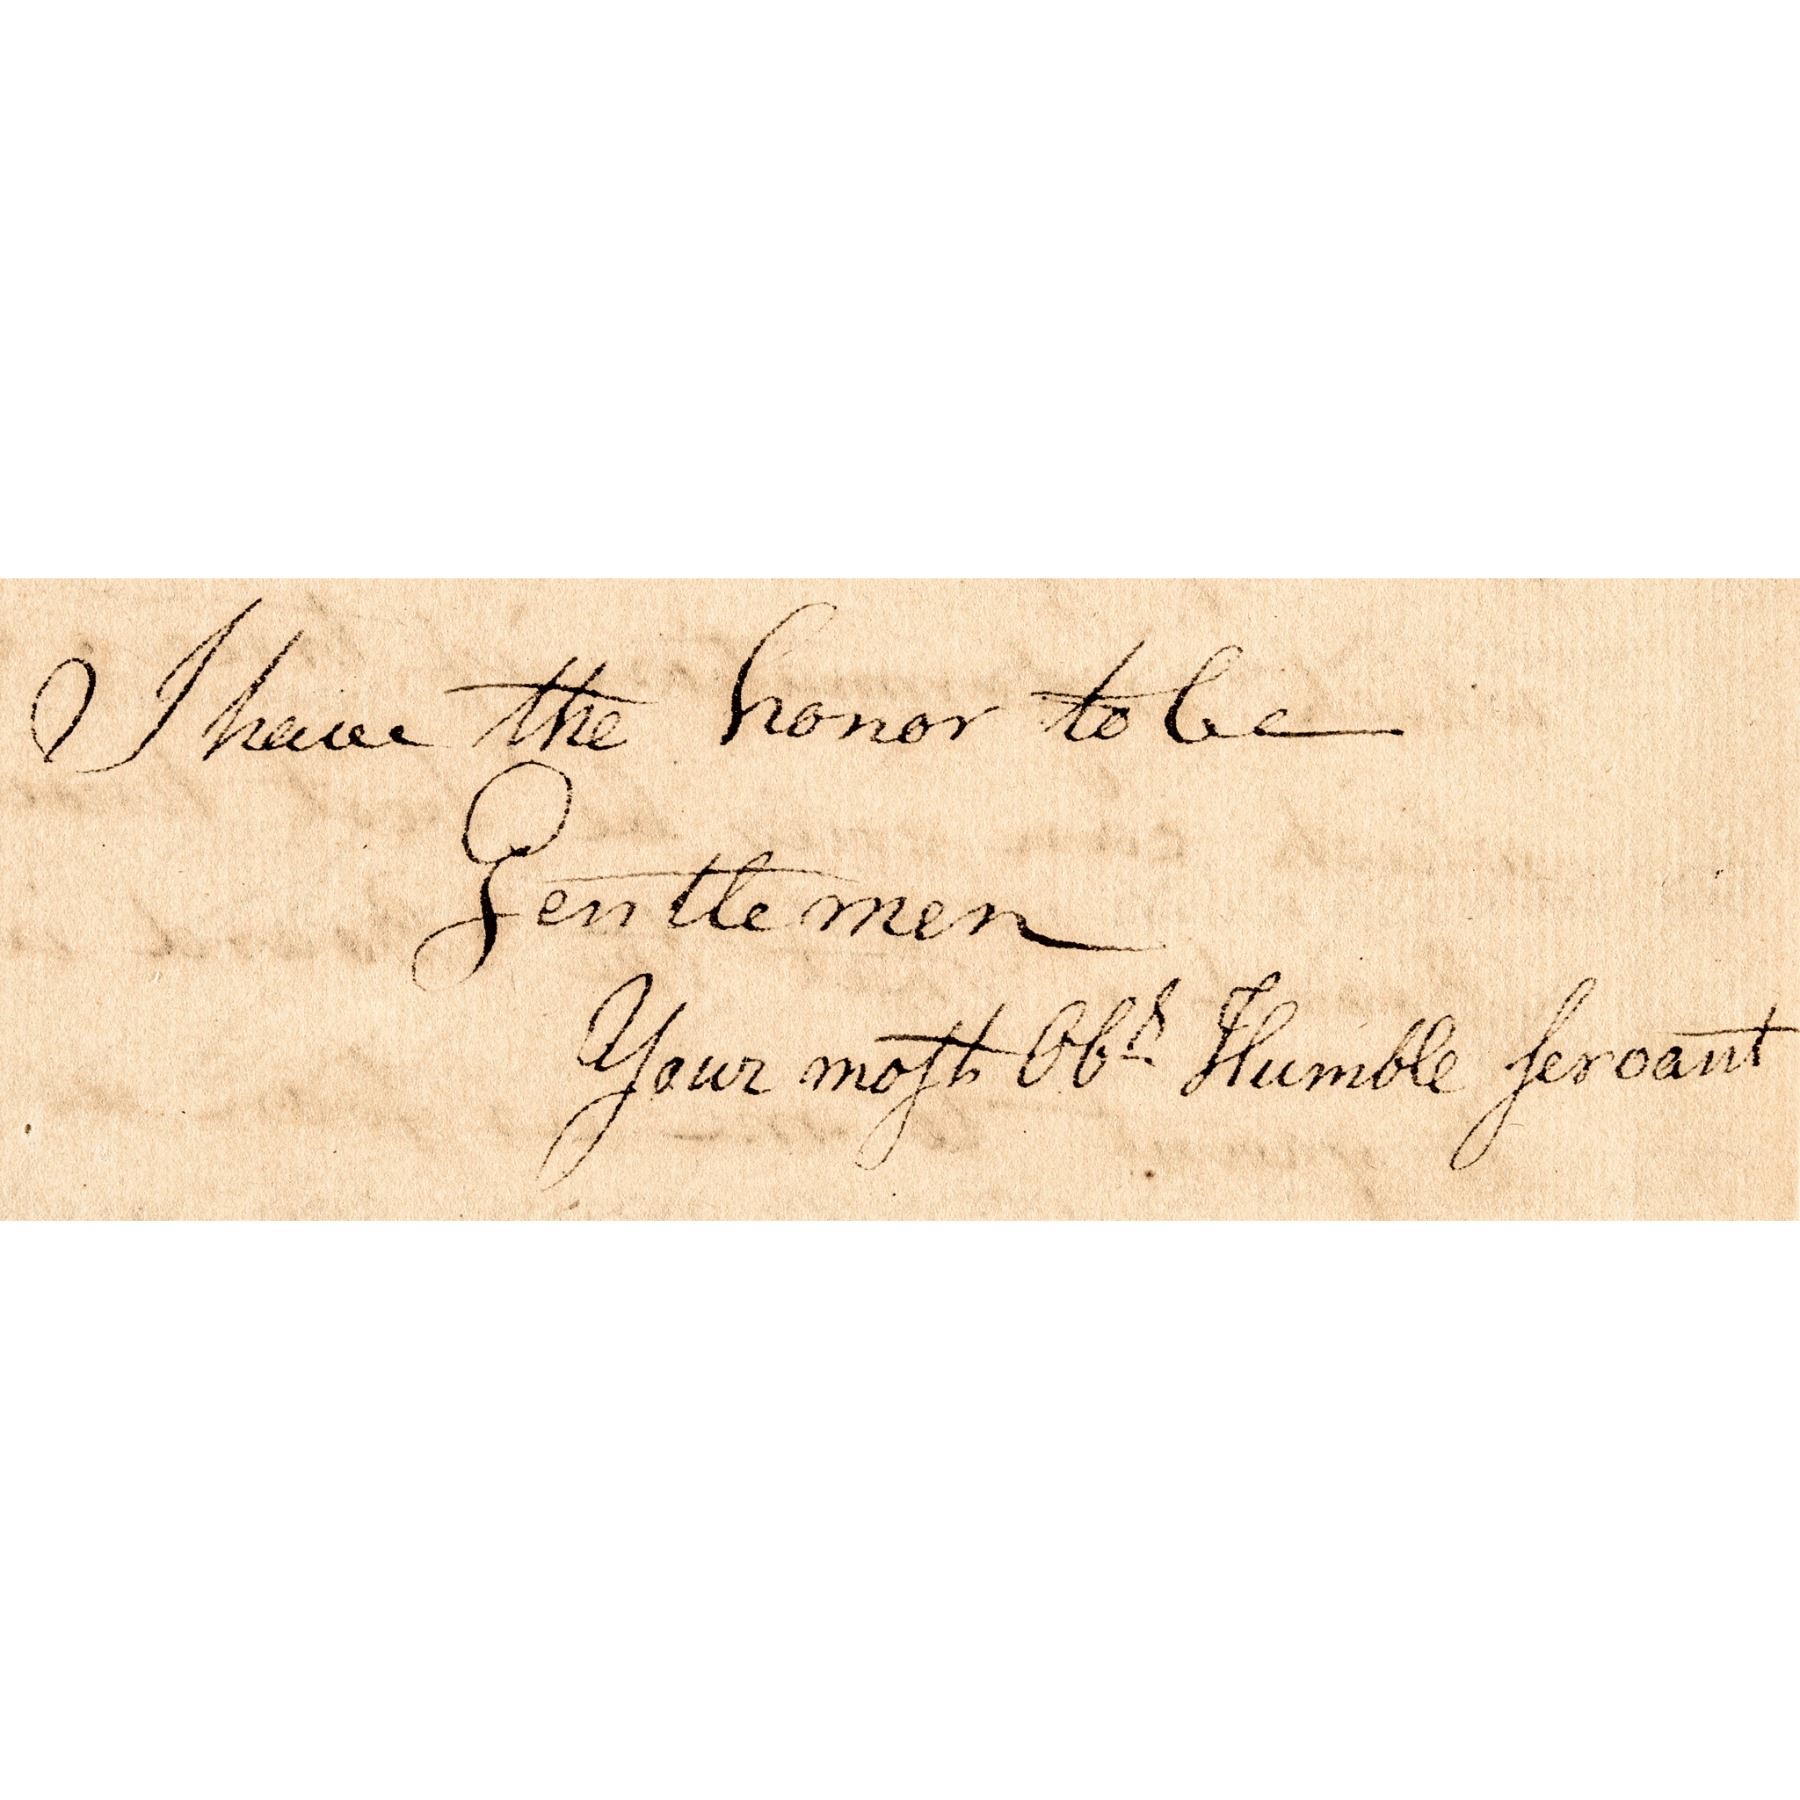 I have the honor to be
Gentlemen
Your most Obt. Humble servant